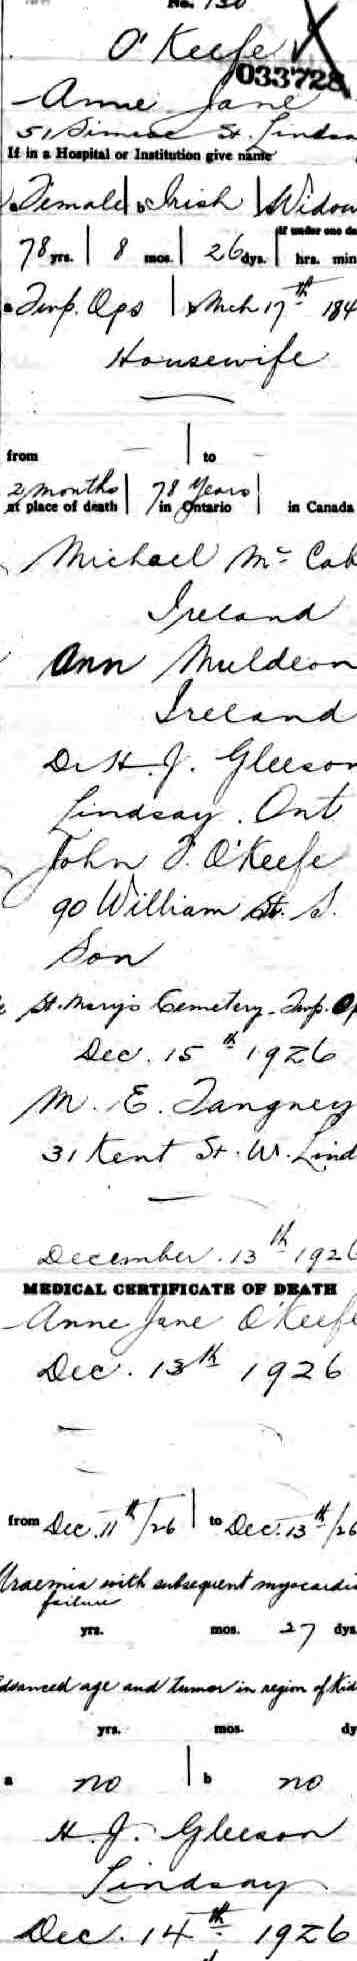 No. 130
O'Keefe
033728
Anne Jane
51 St. Lindsa
If in a Hospital or Institution give name
a Female b Irish Widow
If under one da
78 yrs. 8 mos. 26 dys. hrs. min
a Twp. Ops Mch 17th 184
Housewife
from to
2 months 78 Years
at place of death in Ontario in Canada
Michael Mc Cab
Ireland
Ann Muldeon
Ireland
Dr H. J. Gleeson
Lindsay. Ont
John J. O'Keefe
90 William St. S.
Son
St. Mary's Cemetery. Twp. Op
Dec. 15th 1926
M. E. Tangney
31 Kent St. W. Lind
December. 13th 1926
MEDICAL CERTIFICATE OF DEATH
Anne Jane O'Keefe
Dec. 13th 1926
from Dec. 11th/26 to Dec. 13th/26
Uraemia with subsequent myocardia
failure
yrs. mos. 27 dys.
Advanced age and tumor in region of Kid
yrs. mos. dy
a no b no
H. J. Gleeson
Lindsay
Dec. 14th 1926